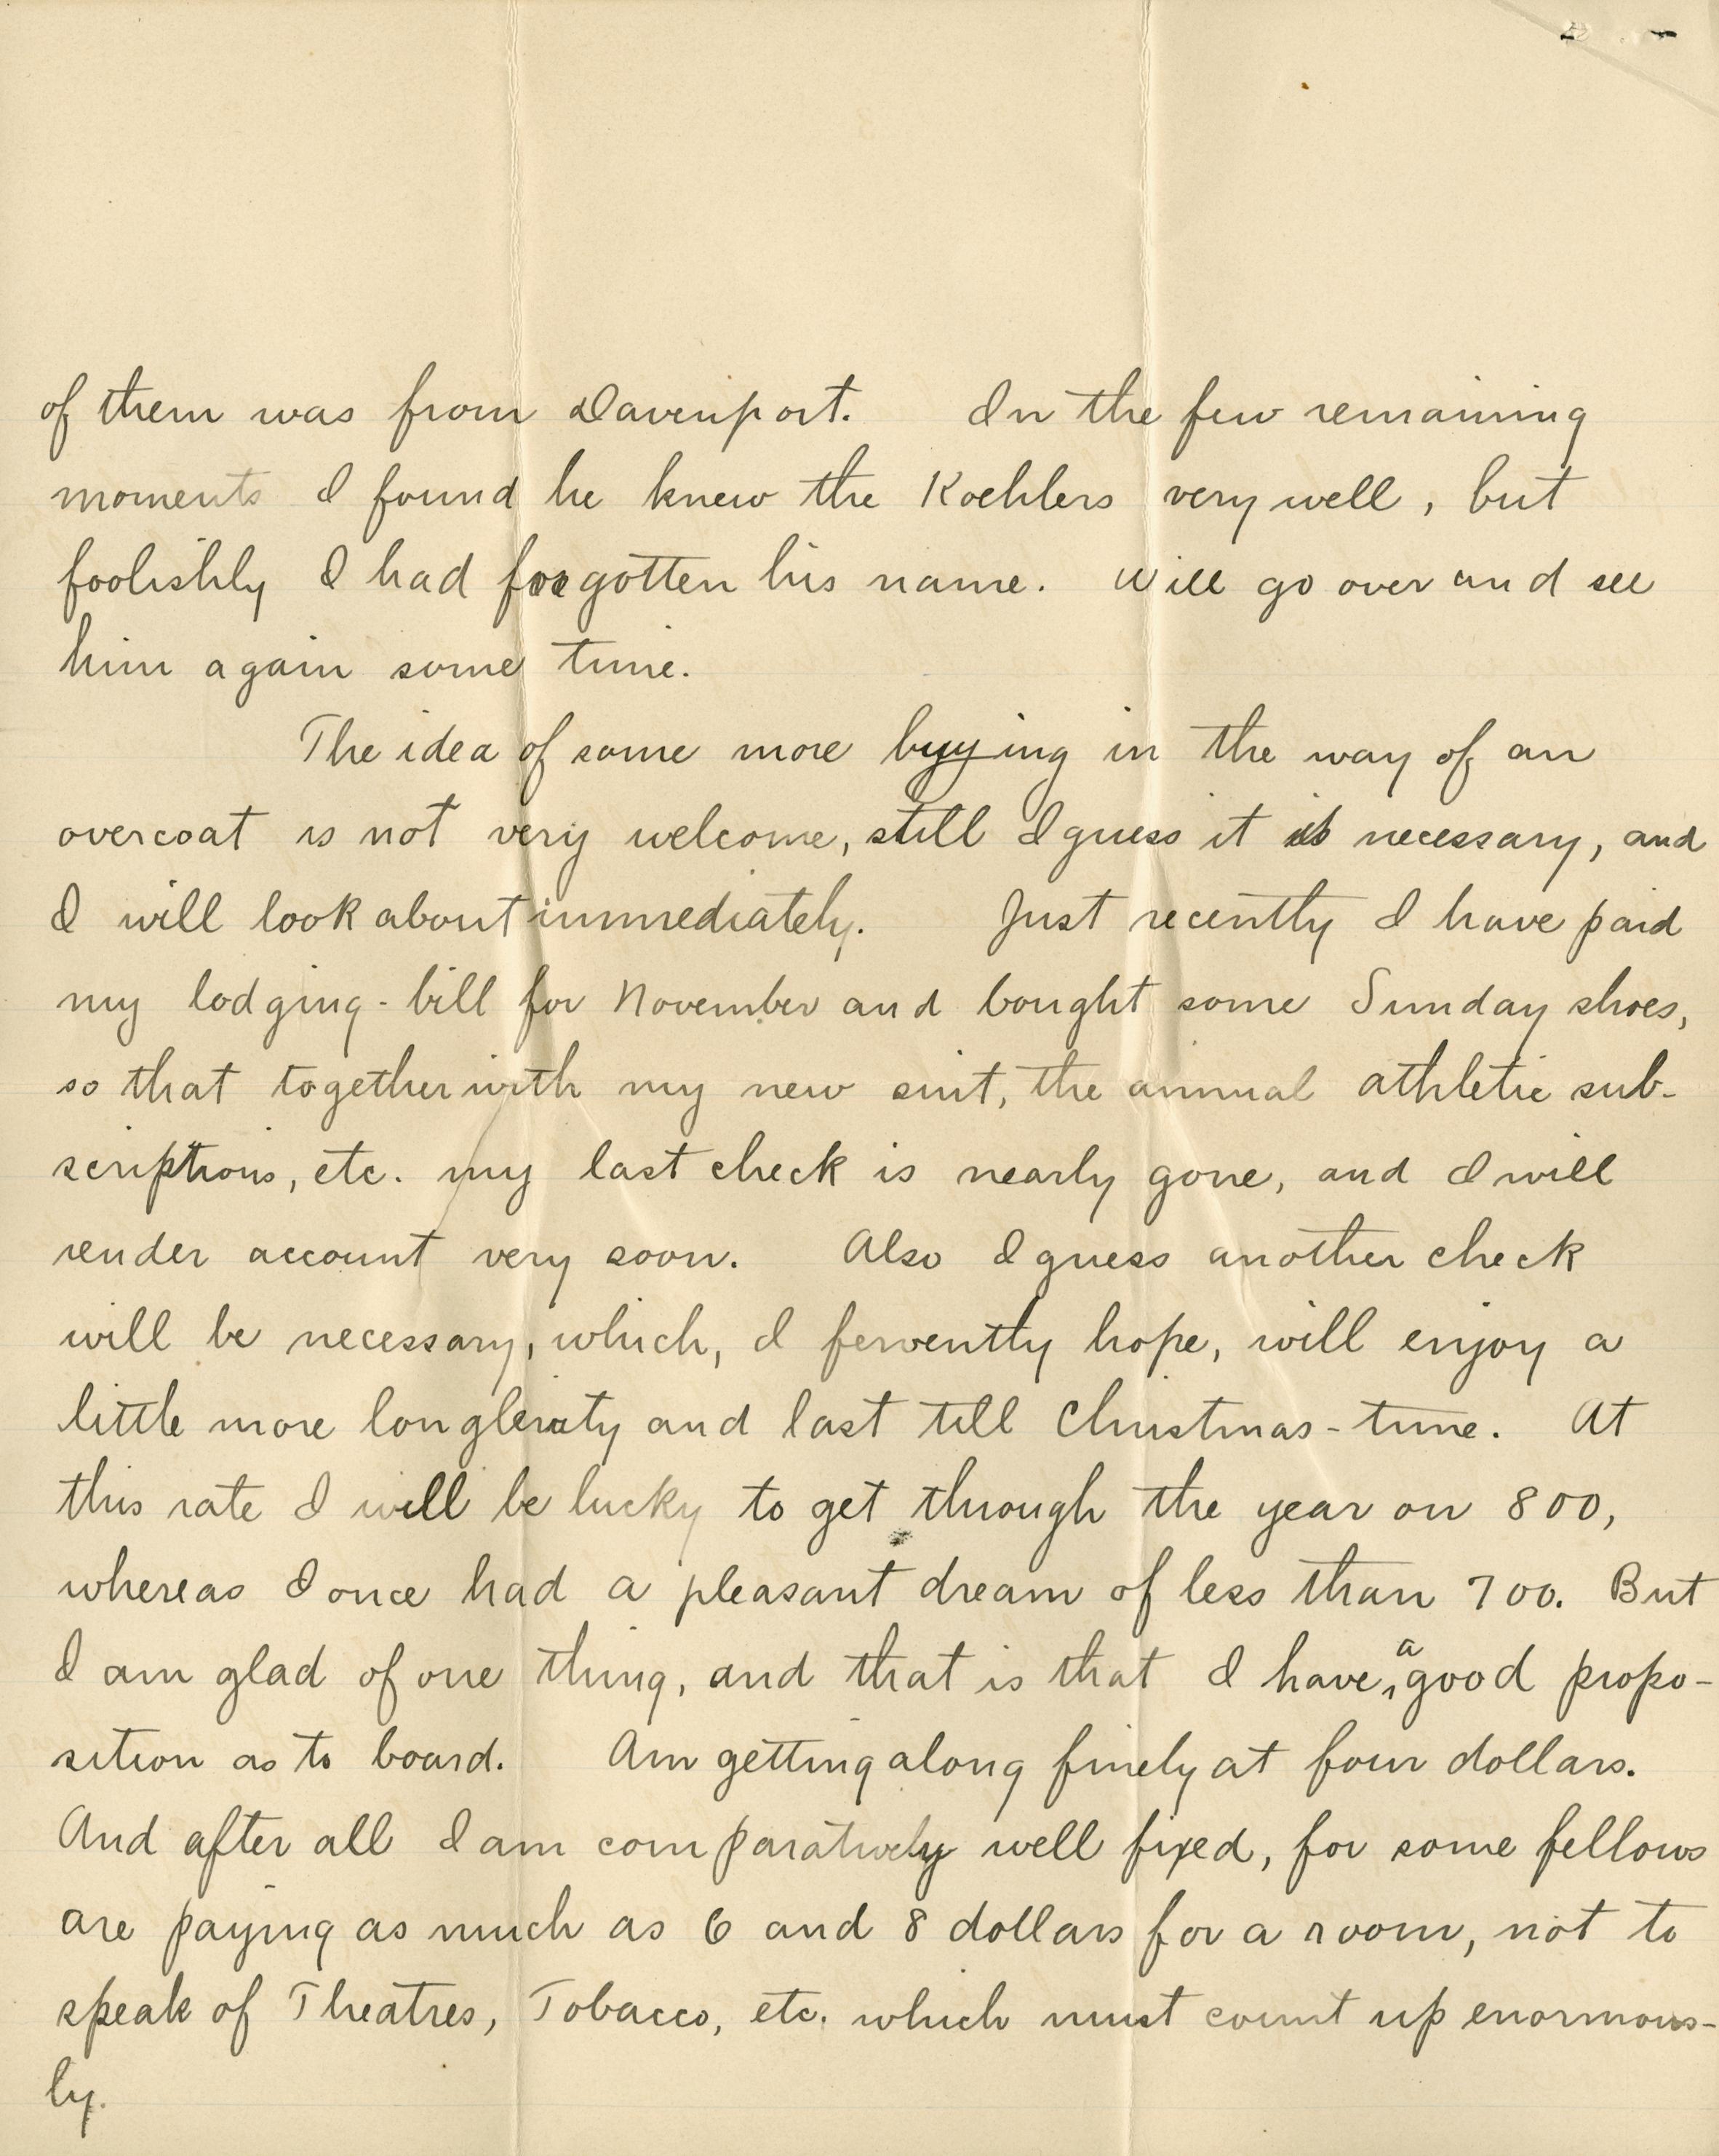 of them was from Davenport. In the few remaining
moments I found he knew the Koehlers very well, but
foolishly I had forgotten his name. Will go over and see
him again some time.
The idea of some more buying in the way of an
overcoat is not very welcome, still I guess it is necessary, and
I will look about immediately. Just recently I have paid
my lodging-bill for November and bought some Sunday shoes,
so that together with my new suit, the annual athletic sub-
scriptions, etc. my last check is nearly gone, and I will
render account very soon. Also I guess another check
will be necessary, which, I fervently hope, will enjoy a
little more longleraty and last till Christmas-time. At
this rate I will be lucky to get through the year on 800,
whereas I once had a pleasant dream of less than 700. But
I am glad of one thing, and that is that I have a good propo-
sition as to board. Am getting along finely at four dollars.
And after all I am comparatively well fixed, for some fellows
are paying as much as 6 and 8 dollars for a room, not to
speak of Theatres, Tobacco, etc. which must count up enormous-
ly.